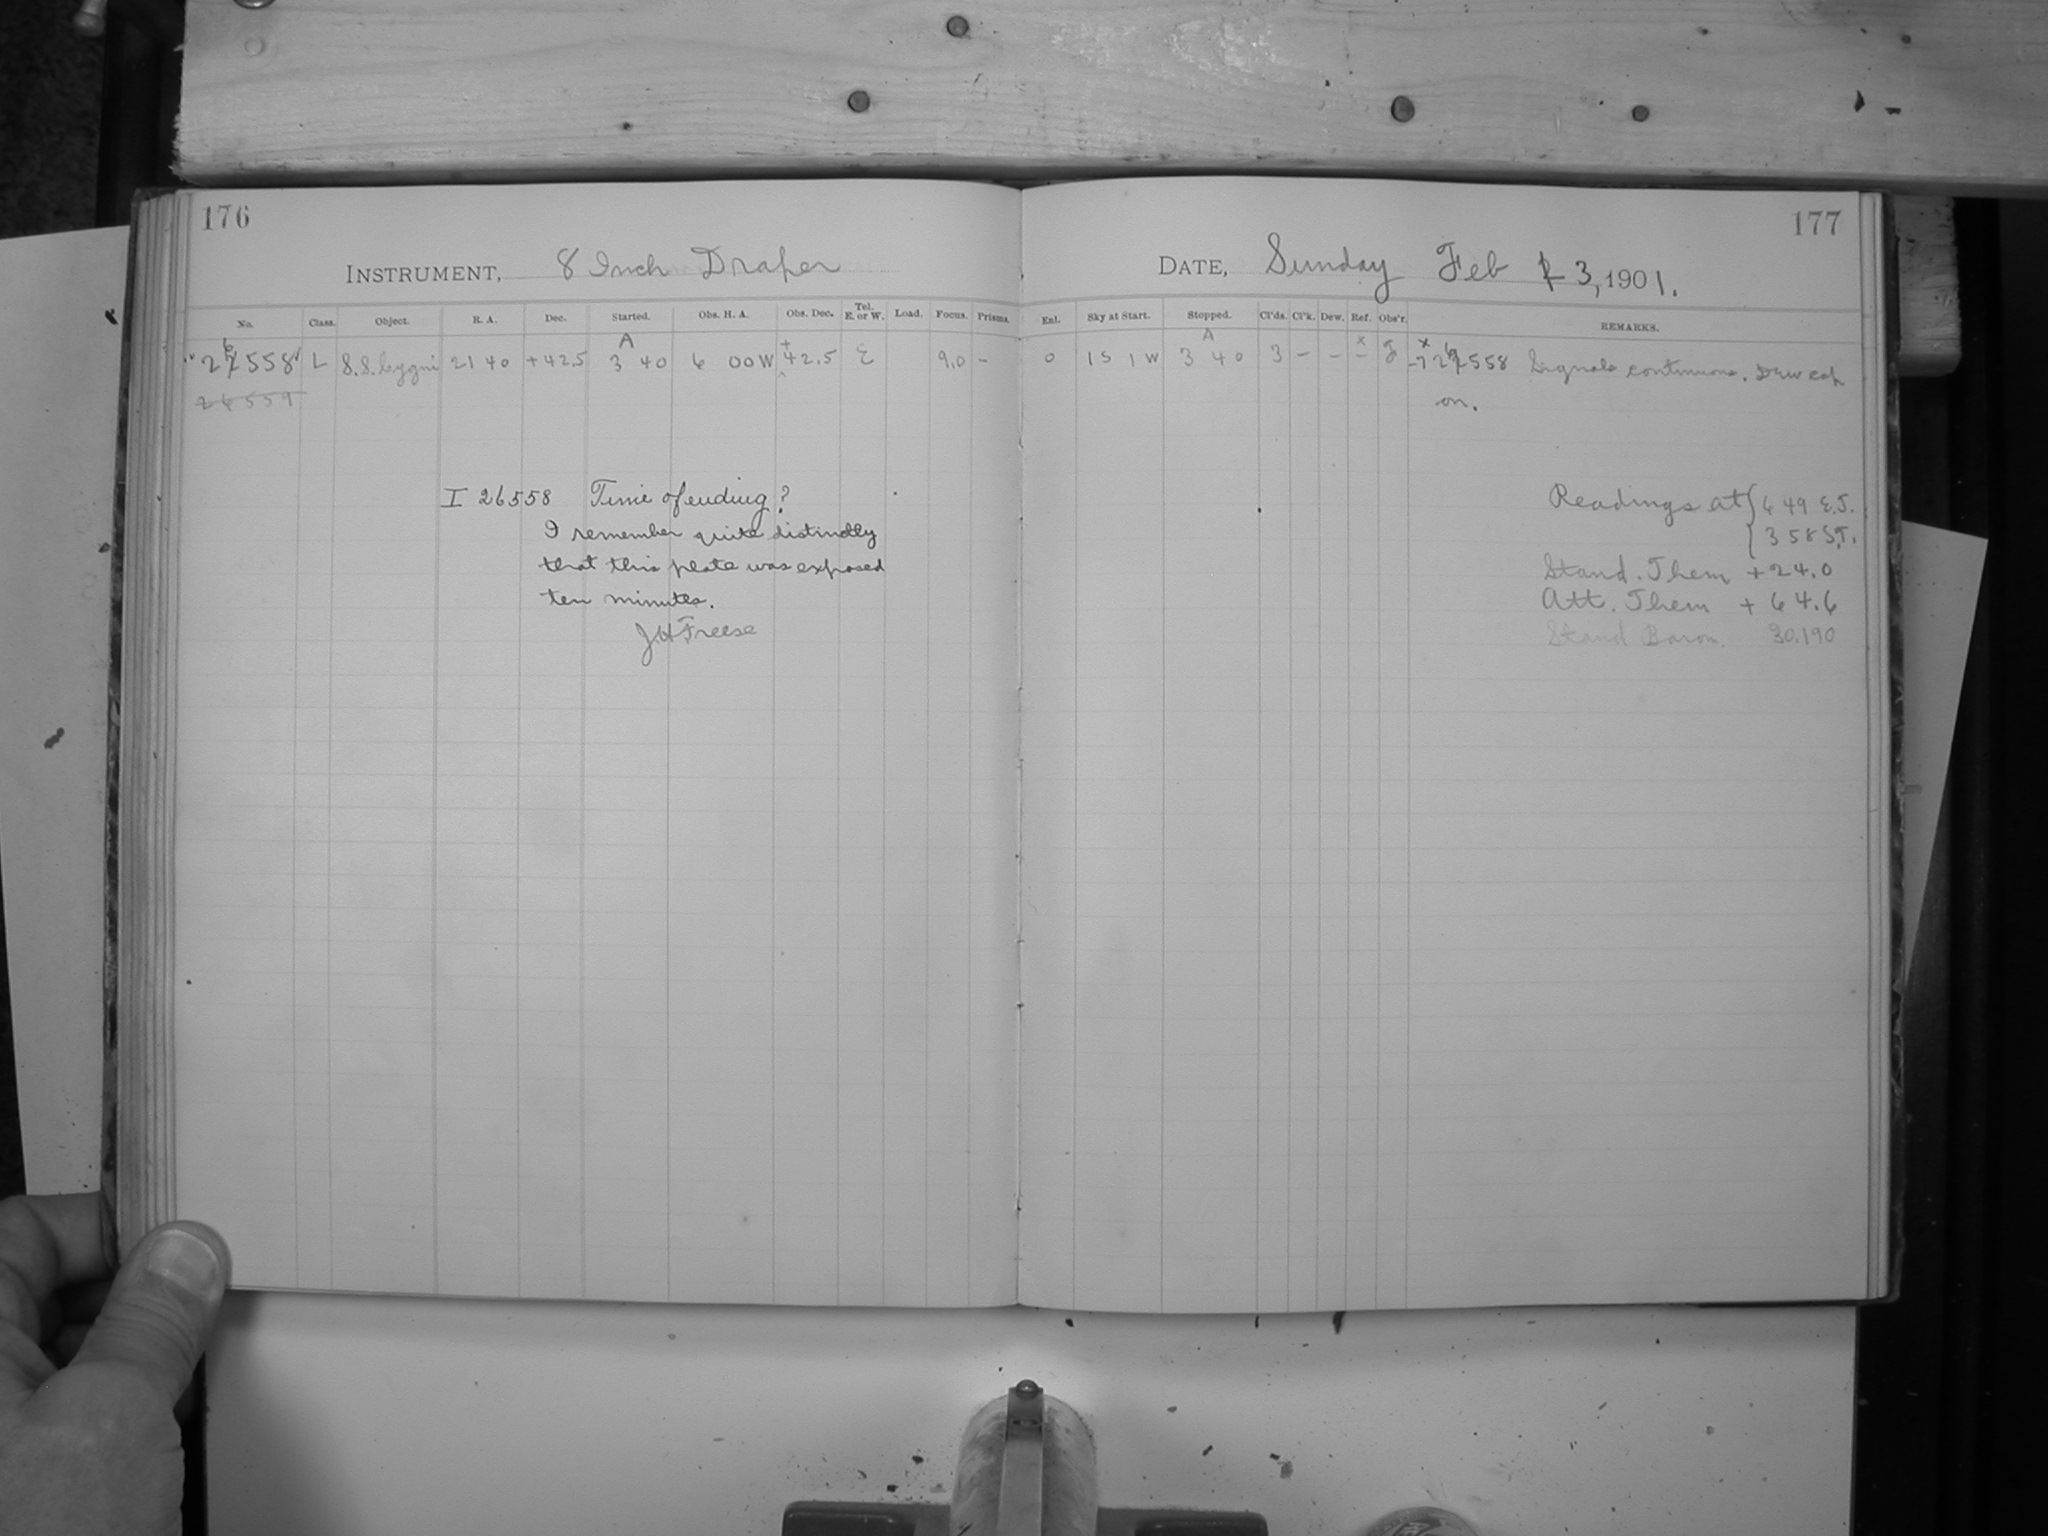 176
177
INSTRUMENT, 8 Inch Draper
DATE, Sunday Feb 3, 1901.
No. Class. Object. R. A. Dec. Started. Obs. H. A. Obs. Dec. Tel. E. or W. Load. Focus. Prisms. Enl. Sky at Start. Stopped. Cl'ds. Cl'k. Dew. Ref. Obs'r. REMARKS.
A + A x x
26558 L S.S. Cygni 21 40 +42.5 3 40 6 00 W 42.5 E 9.0 – 0 1 S 1 W 3 40 3 – – – F 26558 Signals continuous. Dew cap
26559 on.
I 26558 Time of ending?
I remember quite distinctly
that this plate was exposed
ten minutes.
J.H Freese
Readings at { 6 49 E.T.
{ 3 58 S.T.
Stand. Them +24.0
Att. Them + 64.6
Stand Barom. 30.190